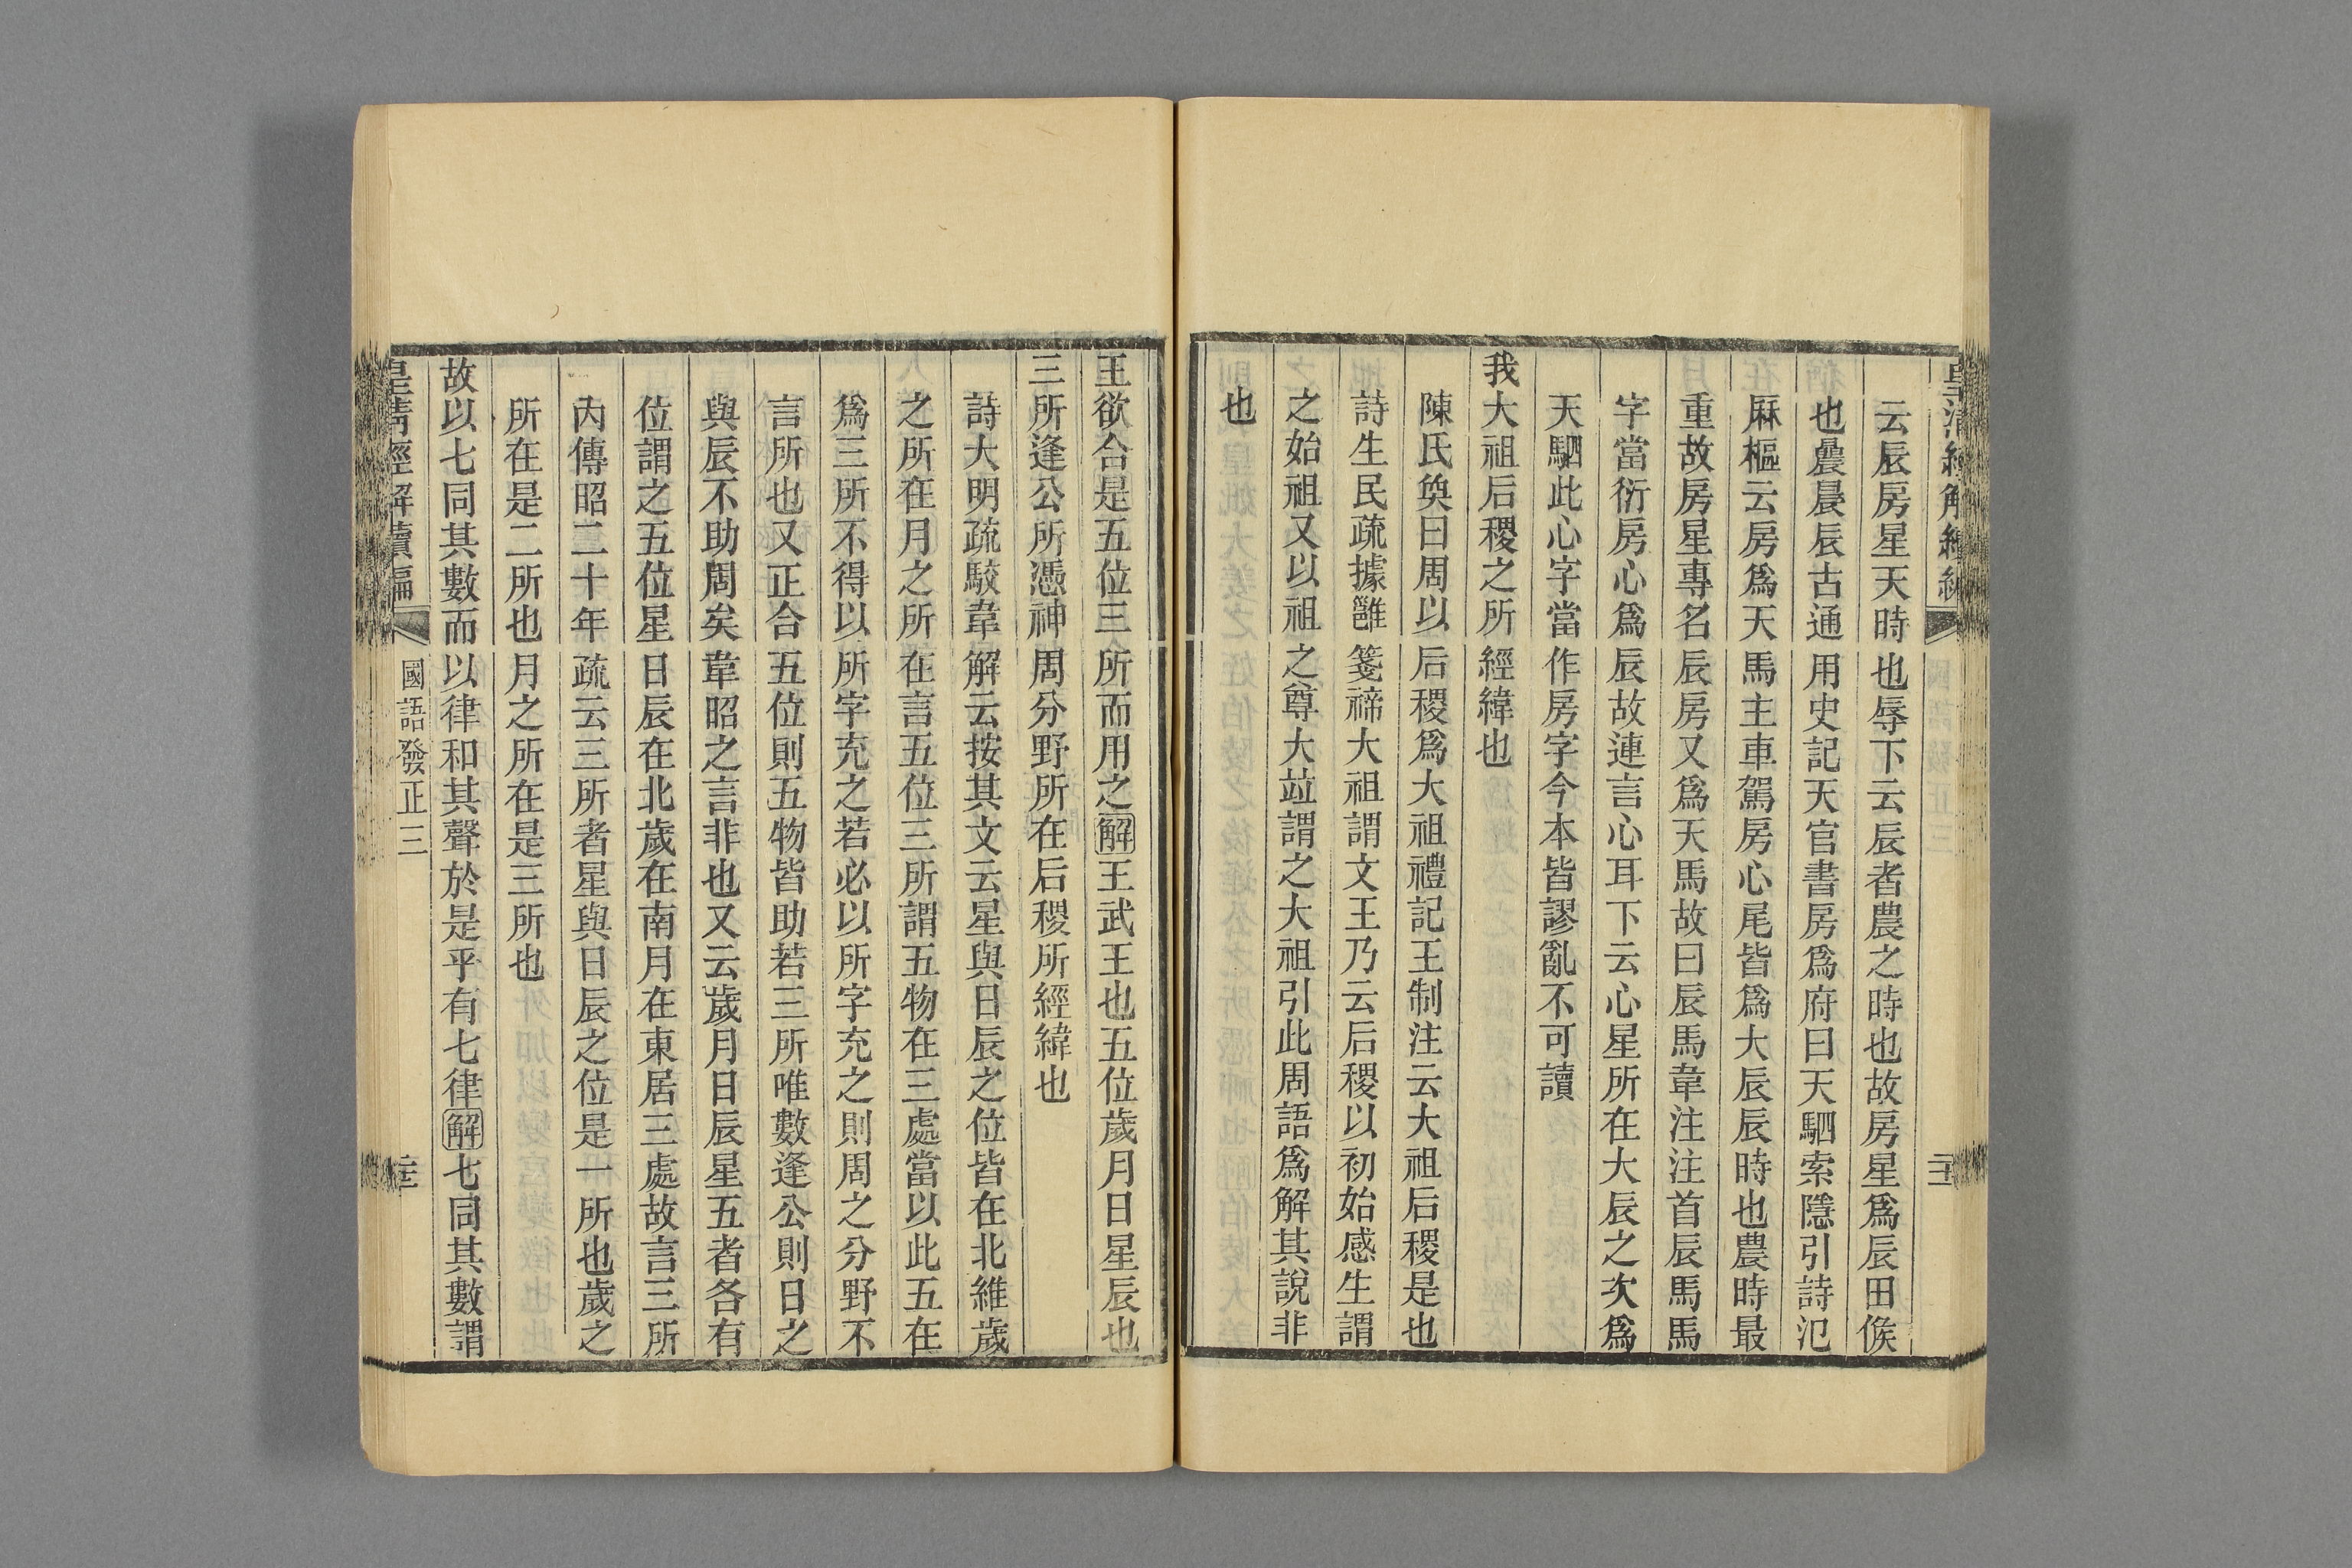 云辰房星天時也辱下云辰者農之時也故房星爲辰田候
也農晨辰古通用史記天官書房爲府曰天駟索隱引詩氾
厤樞云房爲天馬主車駕房心尾皆爲大辰辰時也農時最
重故房星專名辰房又爲天馬故曰辰馬韋注注首辰馬馬
字當衍房心爲辰故連言心耳下云心星所在大辰之次爲
天駟此心字當作房字今本皆謬亂不可讀
我大祖后稷之所經緯也
陳氏奐曰周以后稷爲大祖禮記王制注云大祖后稷是也
詩生民疏據雝箋禘大祖謂文王乃云后稷以初始感生謂
之始祖又以祖之尊大竝謂之大祖引此周語爲解其說非
也
王欲合是五位三所而用之解王武王也五位歲月日星辰也
三所逢公所憑神周分野所在后稷所經緯也
詩大明疏駮韋解云按其文云星與日辰之位皆在北維歲
之所在月之所在言五位三所謂五物在三處當以此五在
爲三所不得以所字充之若必以所字充之則周之分野不
言所也又正合五位則五物皆助若三所唯數逢公則日之
與辰不助周矣韋昭之言非也又云歲月日辰星五者各有
位謂之五位星日辰在北歲在南月在東居三處故言三所
內傳昭二十年疏云三所者星與日辰之位是一所也歲之
所在是二所也月之所在是三所也
故以七同其數而以律和其聲於是乎有七律解七同其數謂
皇清經解續編
國語發正三